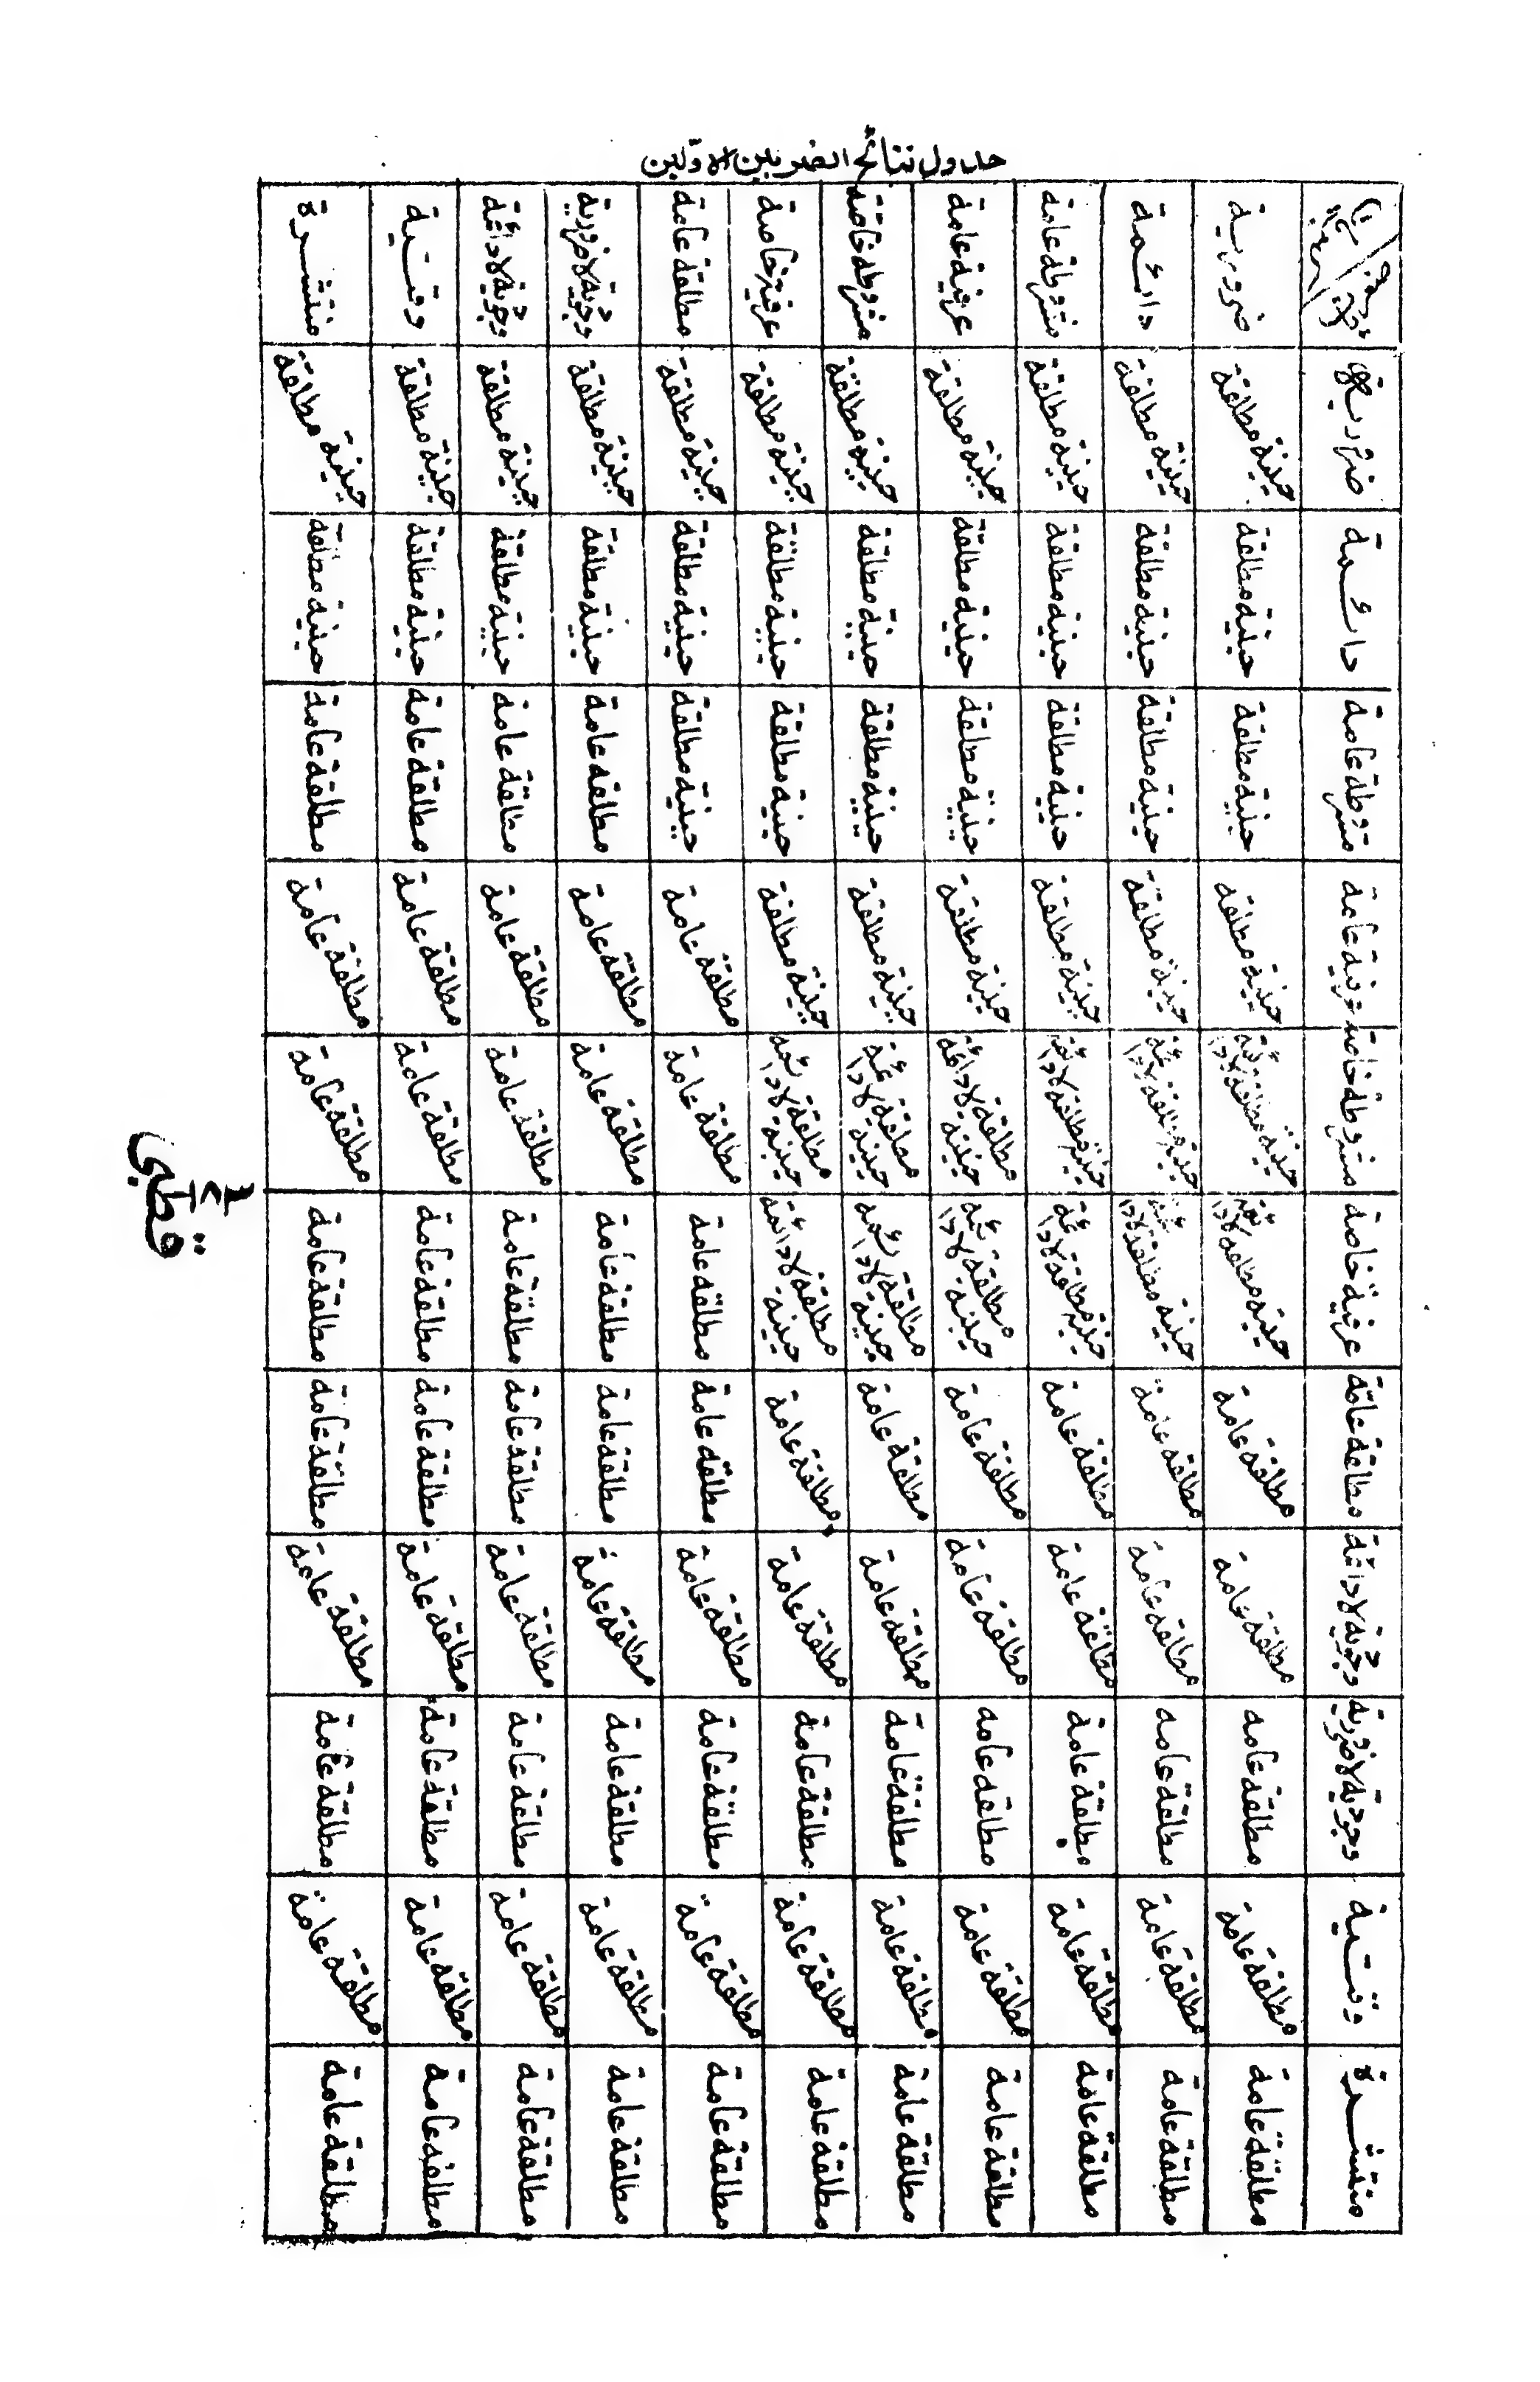 جدول نتائج الضربين الاولين
ضرورية دائمة مشروطة عامة عرفية عامة مشروطة خاصة عرفية خاصة مطلقة عامة وجودية لاضرورية وجودية لادائمة وقتية منتشرة
ضرورية حينية مطلقة حينية مطلقة حينية مطلقة حينية مطلقة حينية مطلقة حينية مطلقة حينية مطلقة حينية مطلقة حينية مطلقة حينية مطلقة حينية مطلقة
دائمة حينية مطلقة حينية مطلقة حينية مطلقة حينية مطلقة حينية مطلقة حينية مطلقة حينية مطلقة حينية مطلقة حينية مطلقة حينية مطلقة حينية مطلقة
مشروطة عامة حينية مطلقة حينية مطلقة حينية مطلقة حينية مطلقة حينية مطلقة حينية مطلقة حينية مطلقة مطلقة عامة مطلقة عامة مطلقة عامة مطلقة عامة
عرفية عامة حينية مطلقة حينية مطلقة حينية مطلقة حينية مطلقة حينية مطلقة حينية مطلقة مطلقة عامة مطلقة عامة مطلقة عامة مطلقة عامة مطلقة عامة
مشروطة خاصة حينية مطلقة لادائمة حينية مطلقة لادائمة حينية مطلقة لادائمة حينية مطلقة لادائمة حينية مطلقة لادائمة حينية مطلقة لادائمة مطلقة عامة مطلقة عامة مطلقة عامة مطلقة عامة مطلقة عامة
عرفية خاصة حينية مطلقة لادائمة حينية مطلقة لادائمة حينية مطلقة لادائمة حينية مطلقة لادائمة حينية مطلقة لادائمة حينية مطلقة لادائمة مطلقة عامة مطلقة عامة مطلقة عامة مطلقة عامة مطلقة عامة
مطلقة عامة مطلقة عامة مطلقة عامة مطلقة عامة مطلقة عامة مطلقة عامة مطلقة عامة مطلقة عامة مطلقة عامة مطلقة عامة مطلقة عامة مطلقة عامة
وجودية لادائمة مطلقة عامة مطلقة عامة مطلقة عامة مطلقة عامة مطلقة عامة مطلقة عامة مطلقة عامة مطلقة عامة مطلقة عامة مطلقة عامة مطلقة عامة
وجودية لاضرورية مطلقة عامة مطلقة عامة مطلقة عامة مطلقة عامة مطلقة عامة مطلقة عامة مطلقة عامة مطلقة عامة مطلقة عامة مطلقة عامة مطلقة عامة
وقتية مطلقة عامة مطلقة عامة مطلقة عامة مطلقة عامة مطلقة عامة مطلقة عامة مطلقة عامة مطلقة عامة مطلقة عامة مطلقة عامة مطلقة عامة
منتشرة مطلقة عامة مطلقة عامة مطلقة عامة مطلقة عامة مطلقة عامة مطلقة عامة مطلقة عامة مطلقة عامة مطلقة عامة مطلقة عامة مطلقة عامة
قطبي